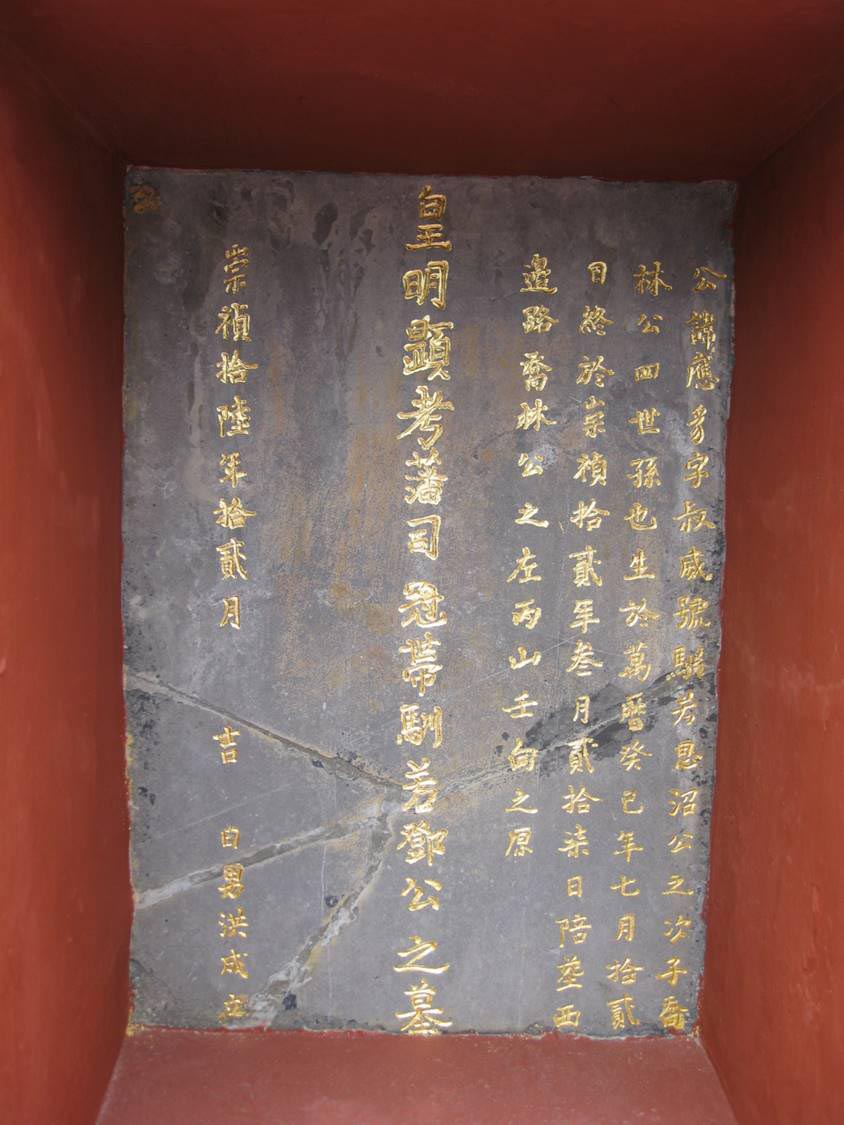 公諱應豸字叔威號馴若思沼公之次子喬
林公四世孫也生於萬曆癸巳年七月拾貳
日終於崇禎拾貳年叁月貳拾柒日陪塟西
邉路喬林公之左丙山壬向之原
皇明顯考藩司冠帶馴若鄧公之墓
崇禎拾陸年拾貳月吉日男洪成立